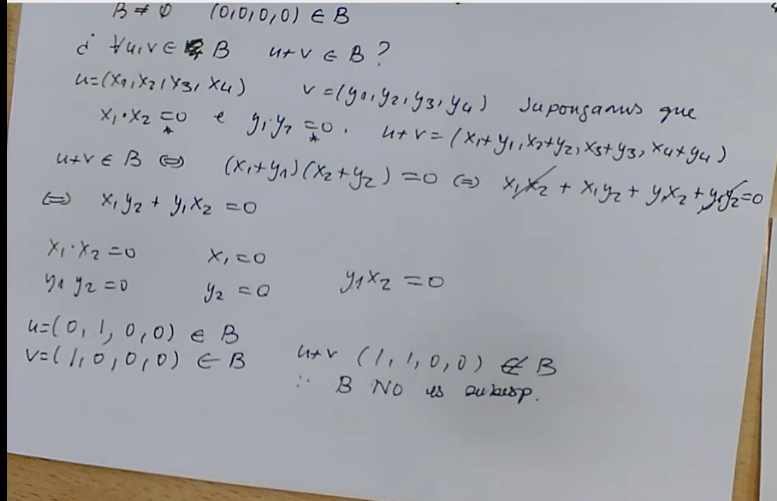 B ≠ ∅ (0,0,0,0) ∈ B
¿ ∀u,v ∈ B u+v ∈ B ?
u=(x1,x2,x3,x4) v=(y1,y2,y3,y4) Supongamos que
x1·x2 =0 e y1·y2 =0. u+v = (x1+y1,x2+y2,x3+y3,x4+y4)
* *
u+v ∈ B ⇔ (x1+y1)(x2+y2)=0 ⇔ x1x2 + x1y2 + y1x2 + y1y2=0
⇔ x1y2 + y1x2 =0
x1·x2 =0 x1=0
y1 y2 =0 y2 =0 y1x2 =0
u=(0,1,0,0) ∈ B
v=(1,0,0,0) ∈ B u+v (1,1,0,0) ∉ B
∴ B NO es subesp.